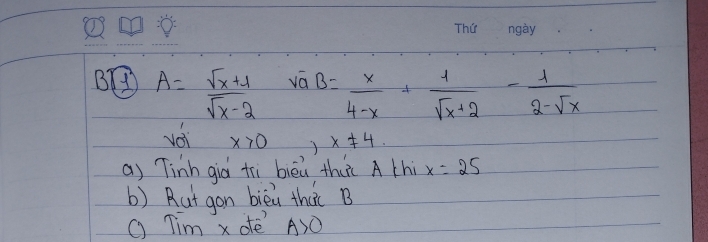 Thứ ngày . .
BT1 A = (√x+1)/(√x-2) và B = x/(4-x) + 1/(√x+2) - 1/(2-√x)
với x>0 , x≠4.
a) Tính giá trị biểu thức A khi x = 25
b) Rút gọn biểu thức B
c) Tìm x để A>0